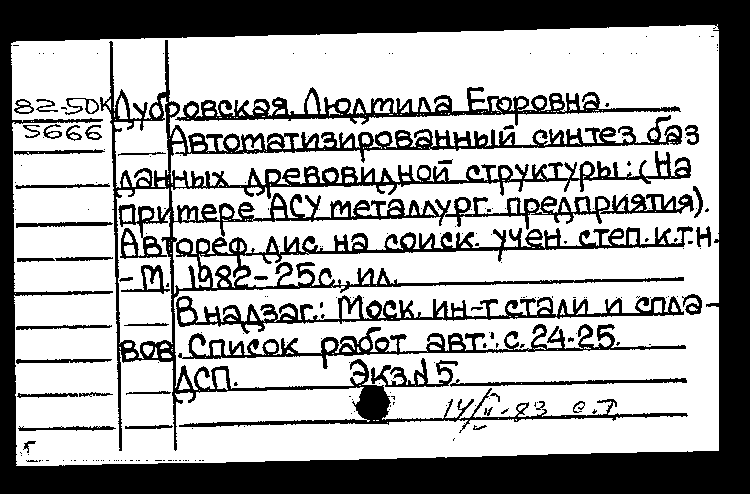 82-50К Дубровская, Людмила Егоровна.
5666 Автоматизированный синтез баз
данных древовидной структуры: (На
примере АСУ металлург. предприятия).
Автореф. дис. на соиск. учен. степ. к.т.н.
- М., 1982 - 25 с., ил.
В надзаг.: Моск. ин-т стали и спла-
вов. Список работ авт.: с. 24-25.
ДСП. Экз. № 5.
14/II-83